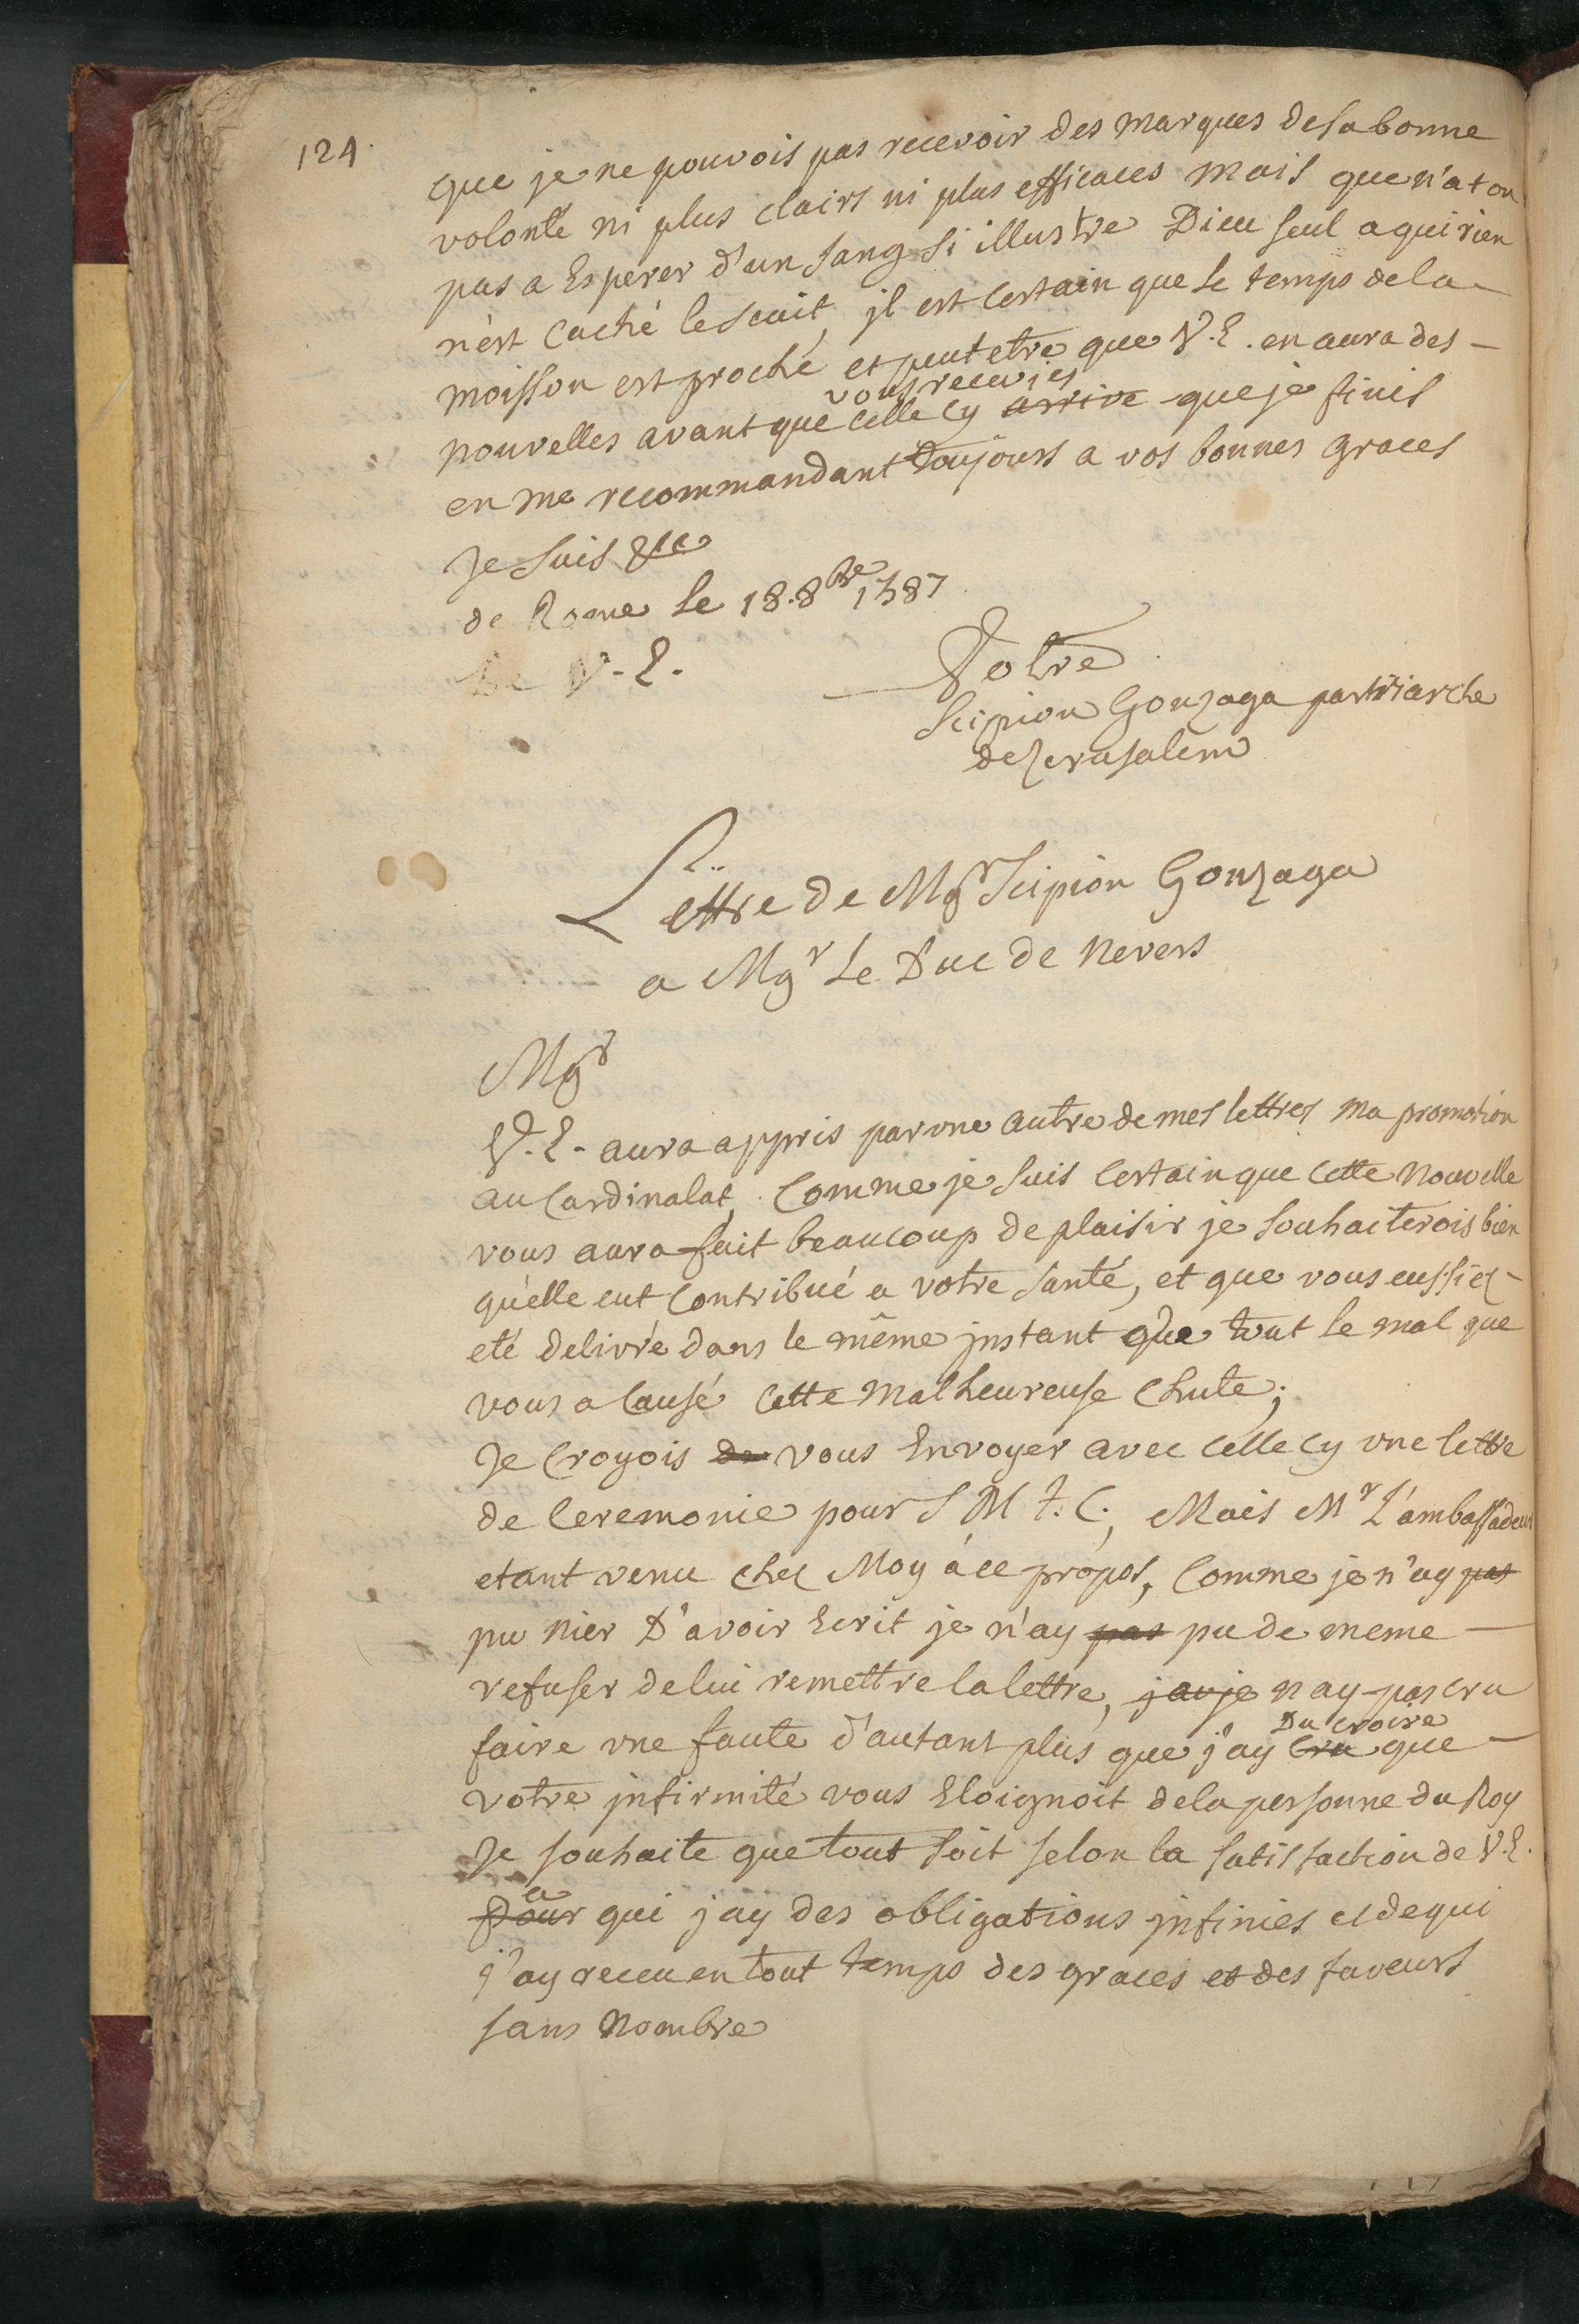 124.
que je ne pouvois pas recevoir des marques de sa bonne
volonté ni plus clairs ni plus efficaces mais que n'at on
pas a Esperer d'un sang si illustre Dieu seul a qui rien
n'est caché le scait, jl est certain que le temps de la
moisson est proche et peut etre que V. E. en aura des
vous recevies
nouvelles avant que celle cy arrive que je finis
en me recommandant toujours a vos bonnes graces
Je suis &ce
de Rome le 18. 8bre 1587
De V. E.
Votre
Scipion Gonzaga partriarche
de Jerusalem
Lettre de Mgr Scipion Gonzaga
a Mgr Le Duc de Nevers
Mgr
V. E. aura appris par vne autre de mes lettres ma promotion
au Cardinalat, Comme je suis certain que cette nouvelle
vous aura fait beaucoup de plaisir je souhaiterois bien
qu'elle eut contribué a votre santé, et que vous eussiez
eté delivré dans le même jnstant que tout le mal que
vous a causé cette malheureuse chute;
Je croyois de vous Envoyer avec celle cy vne lettre
de Ceremonie pour S M t. C., Mais Mr L'ambassadeur
etant venu chez Moy à ce propos, Comme je n'ay pas
pu nier D'avoir Ecrit je n'ay pas pu de meme
refuser de lui remettre la lettre, jay je n ay pas cru
Du croire
faire vne faute d'autant plus que j'ay cru que
votre jnfirmité vous Eloignoit de la personne du Roy
Je souhaite que tout soit selon la satisfaction de V. E.
a
pour qui j ay des obligations jnfinies et de qui
j'ay receu en tout temps des graces et des faveurs
sans nombre